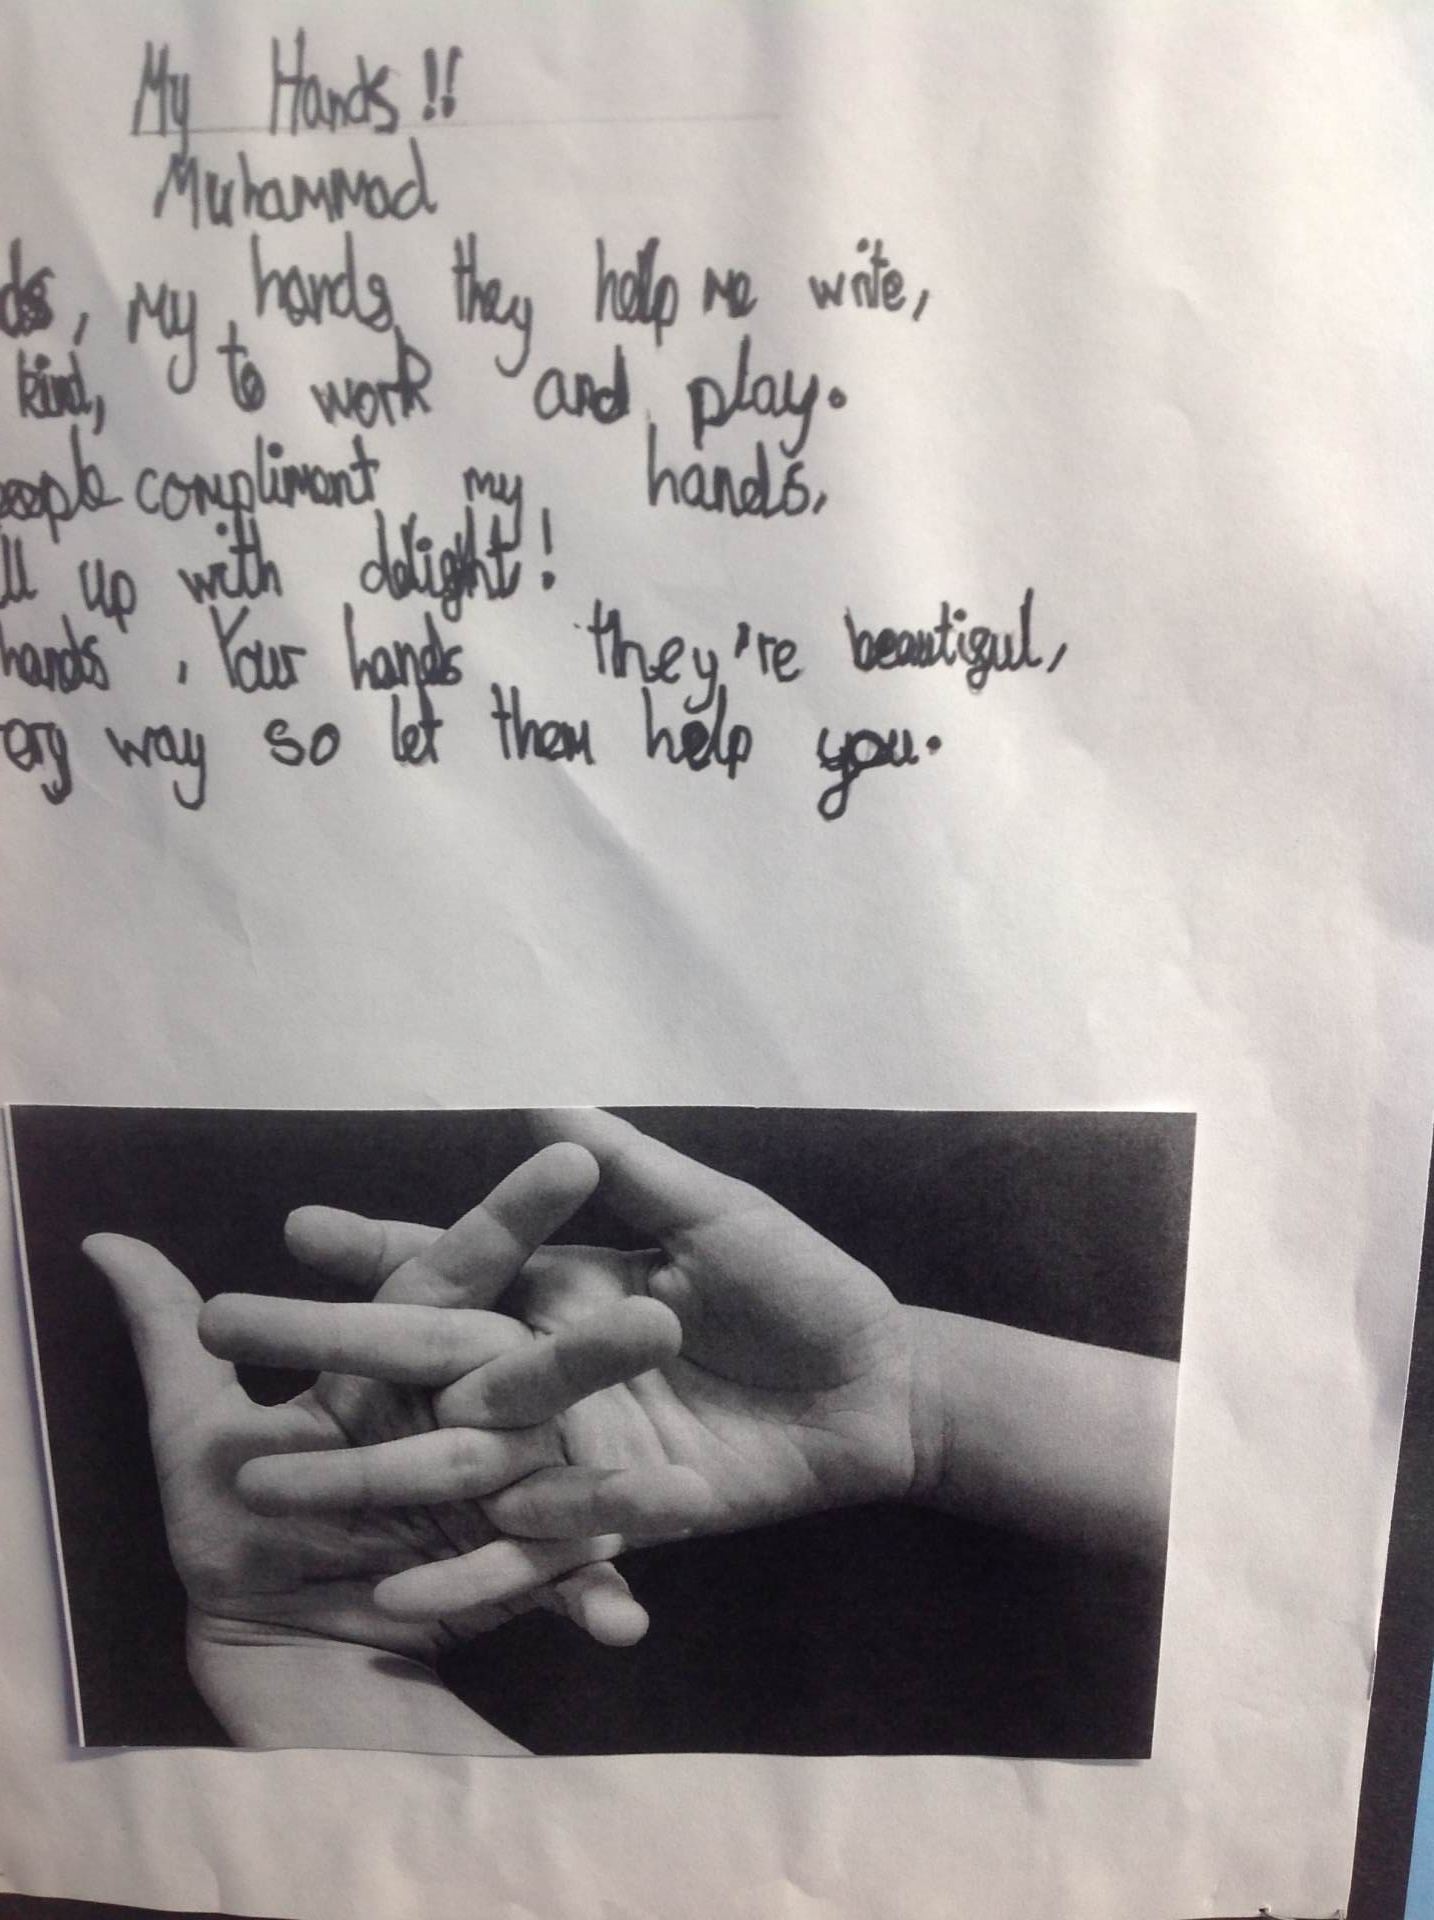 My Hands!!
Muhammad
ds, my hands they help me write,
kind, to work and play.
eople compliment my hands,
ll up with delight!
hands, Your hands they're beautiful,
ery way so let them help you.